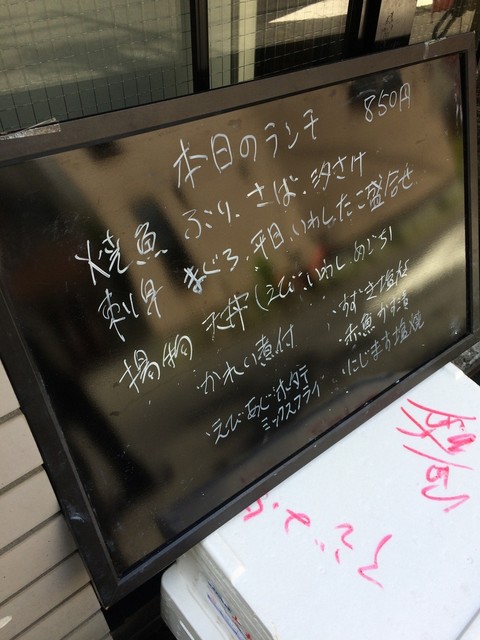 本日のランチ 850円
焼魚 ぶり、さば、汐さけ
刺身 まぐろ、平目、いわし、たこ盛合せ
揚物 天丼(えび、いわし、めごち)
・かれい煮付
・えび・あじ・ホタテ
ミックスフライ
・すずき塩焼
・赤魚かす漬
・にじます塩焼